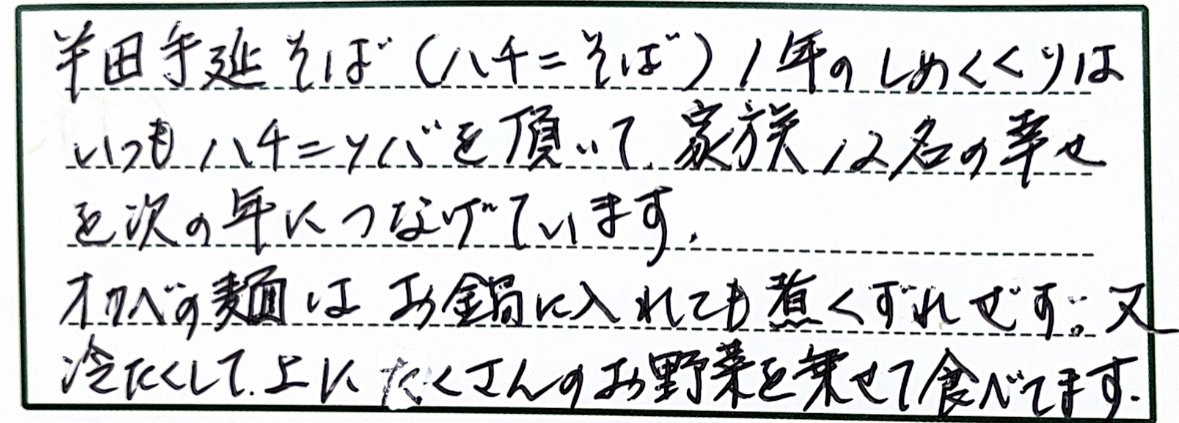 半田手延そば(八千二そば)1年のしめくくりは
いつも八千二ソバを頂いて、家族12名の幸せ
を次の年につなげています。
オカベの麺はお鍋に入れても煮くずれぜず。又
冷たくして、上にたくさんのお野菜を乗せて食べてます。